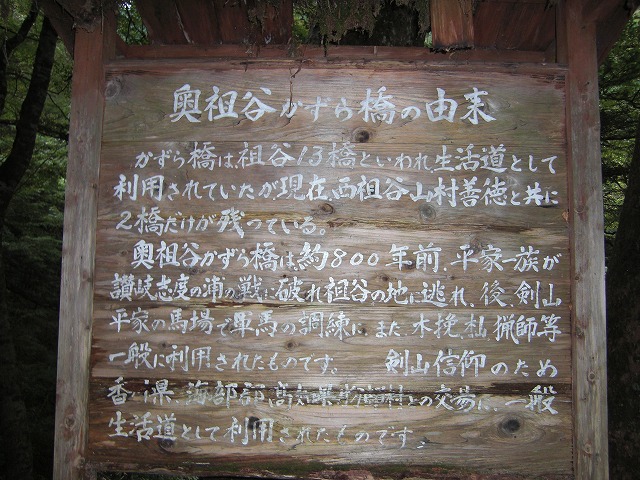 奥祖谷かずら橋の由来
かずら橋は、祖谷13橋といわれ、生活道として
利用されていたが、現在、西祖谷山村善徳と共に
2橋だけが残っている。
奥祖谷かずら橋は、約800年前、平家一族が
讃岐志度の浦の戦に破れ祖谷の地に逃れ、後、剣山
平家の馬場で軍馬の調練に、また、木挽、札、猟師等
一般に利用されたものです。 剣山信仰のため
香川県、海部郡、高知県 村との交易に、一般
生活道として利用されたものです。